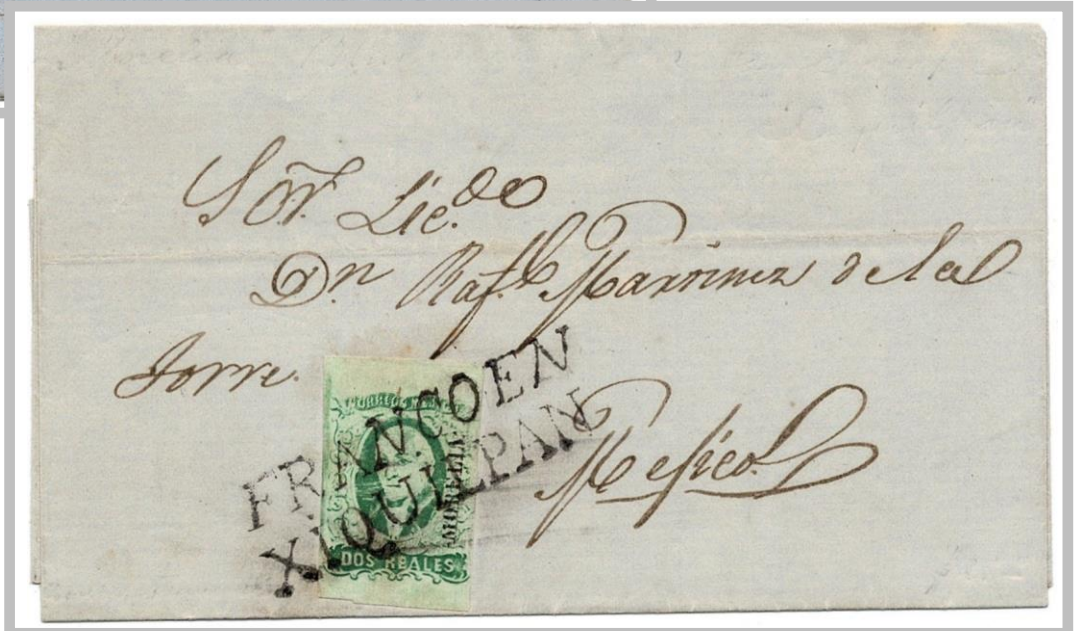 Sor. Lic.do
Dn Raf.l Martinez de la
Torre.
FRANCO EN
XIQUILPAN
CORREOS MEJICO
MORELIA
DOS REALES
Mejico